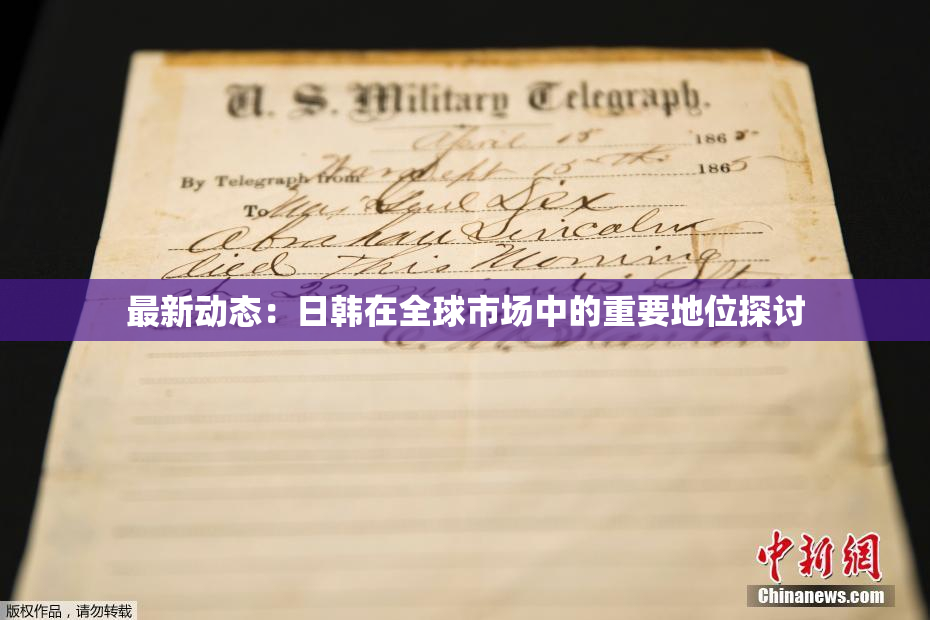 U. S. Military Telegraph.
April 15 1865
By Telegraph from War Dept 15th 1865
To Maj Genl Dix
Abraham Lincoln
died This Morning
at 22 minutes after
最新动态：日韩在全球市场中的重要地位探讨
E. M. Stanton
中新网
Chinanews.com
版权作品，请勿转载